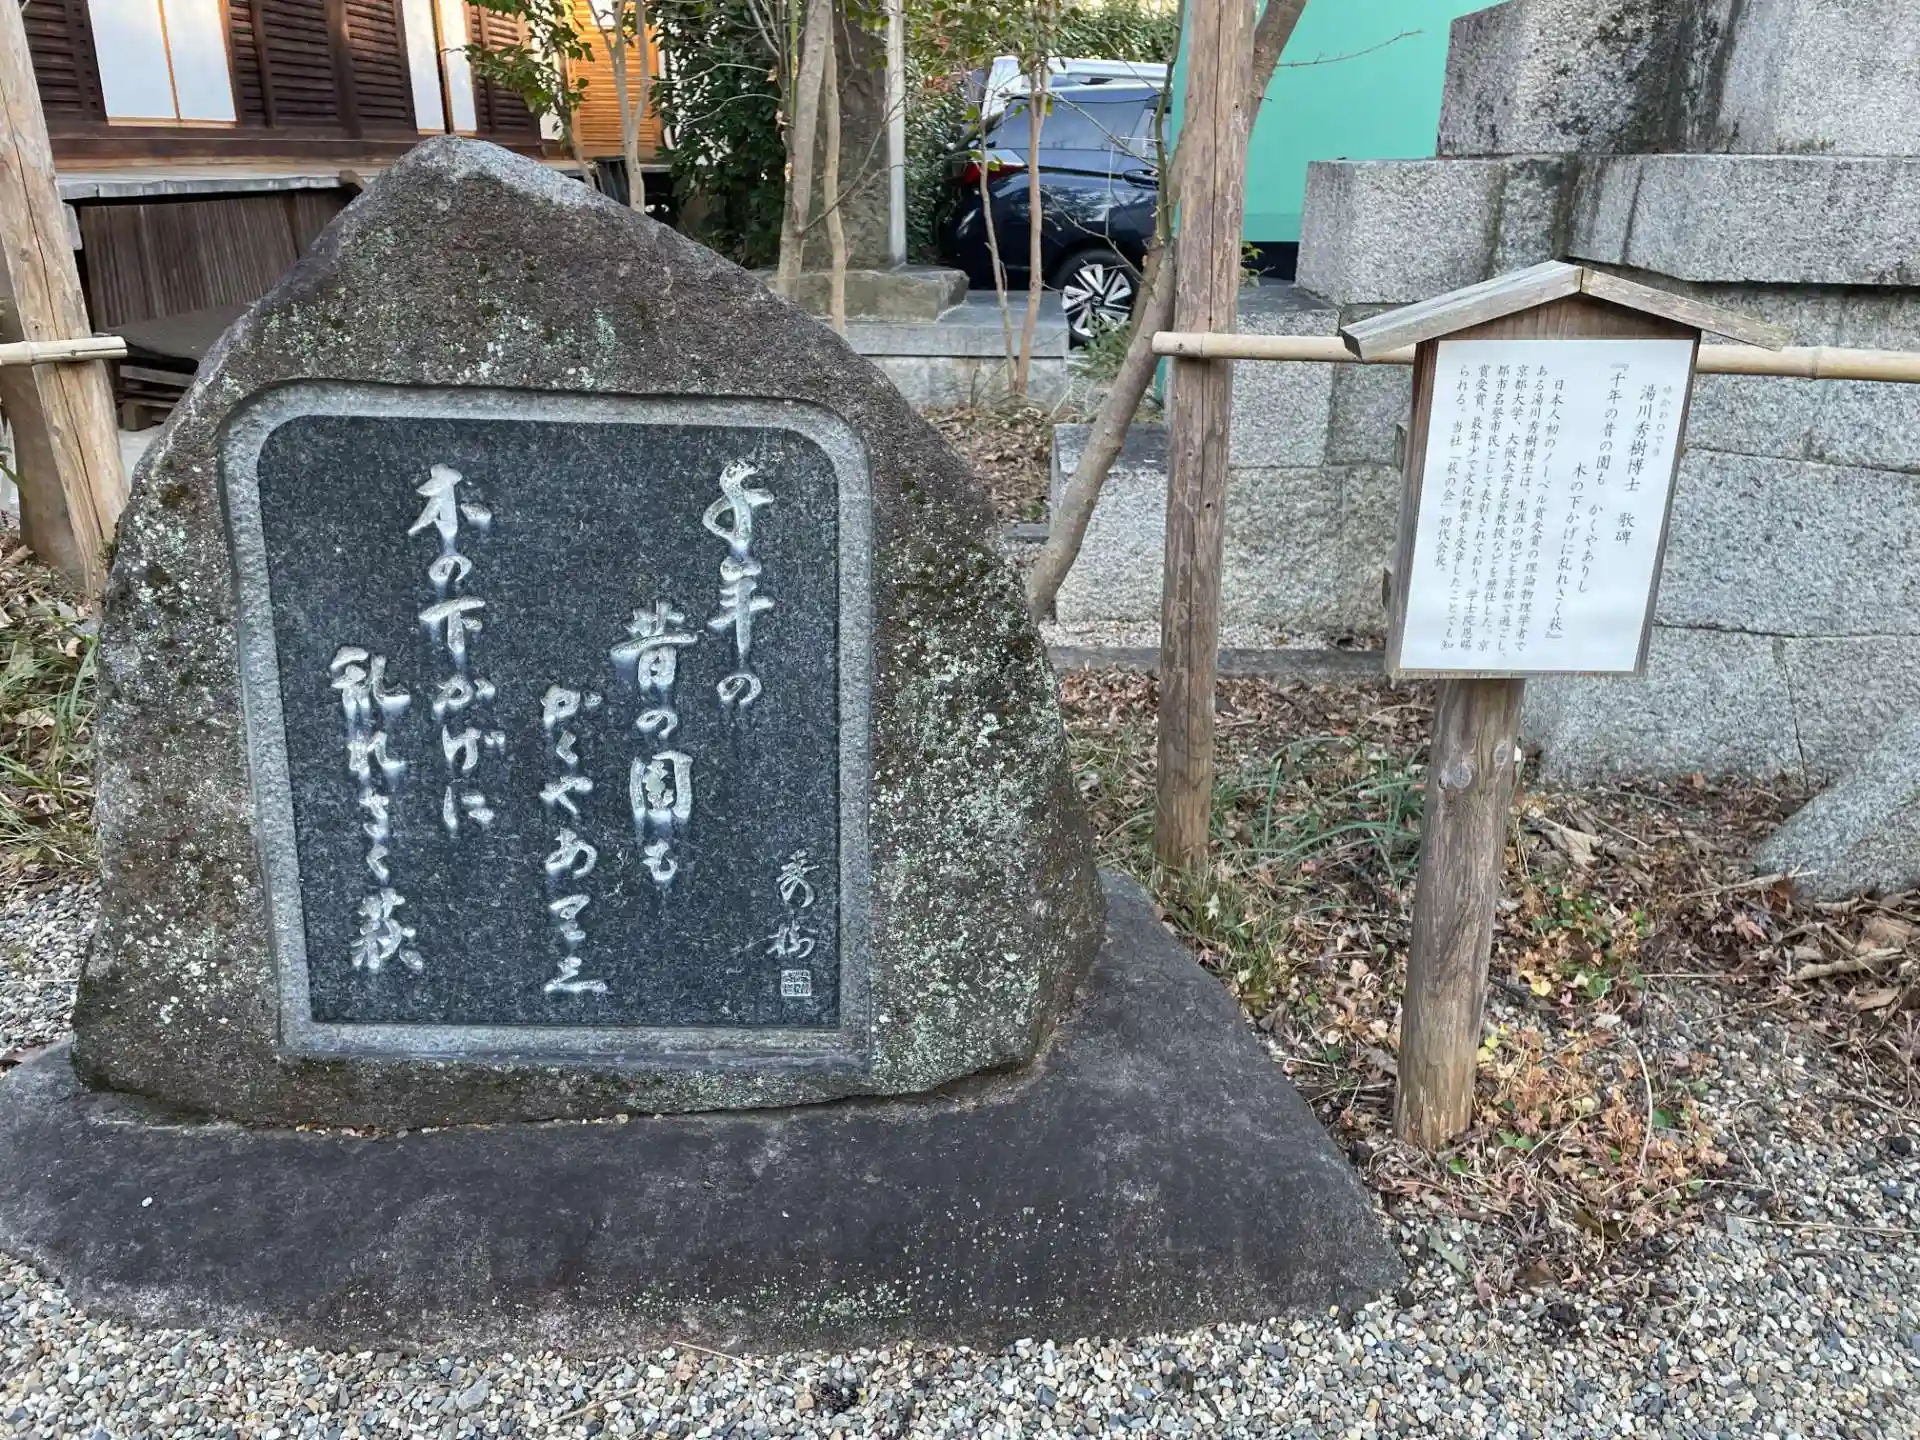 千年の
昔の園も
かくやありし
木の下かげに
乱れさく萩
秀樹
湯川秀樹博士 歌碑
ゆかわひでき
『千年の昔の園も かくやありし
木の下かげに乱れさく萩』
日本人初のノーベル賞受賞の理論物理学者で
ある湯川秀樹博士は、生涯の殆どを京都で過ごし、
京都大学、大阪大学名誉教授などを歴任した。京
都市名誉市民として表彰されており、学士院恩賜
賞受賞、最年少で文化勲章を受章したことでも知
られる。当社「萩の会」初代会長。